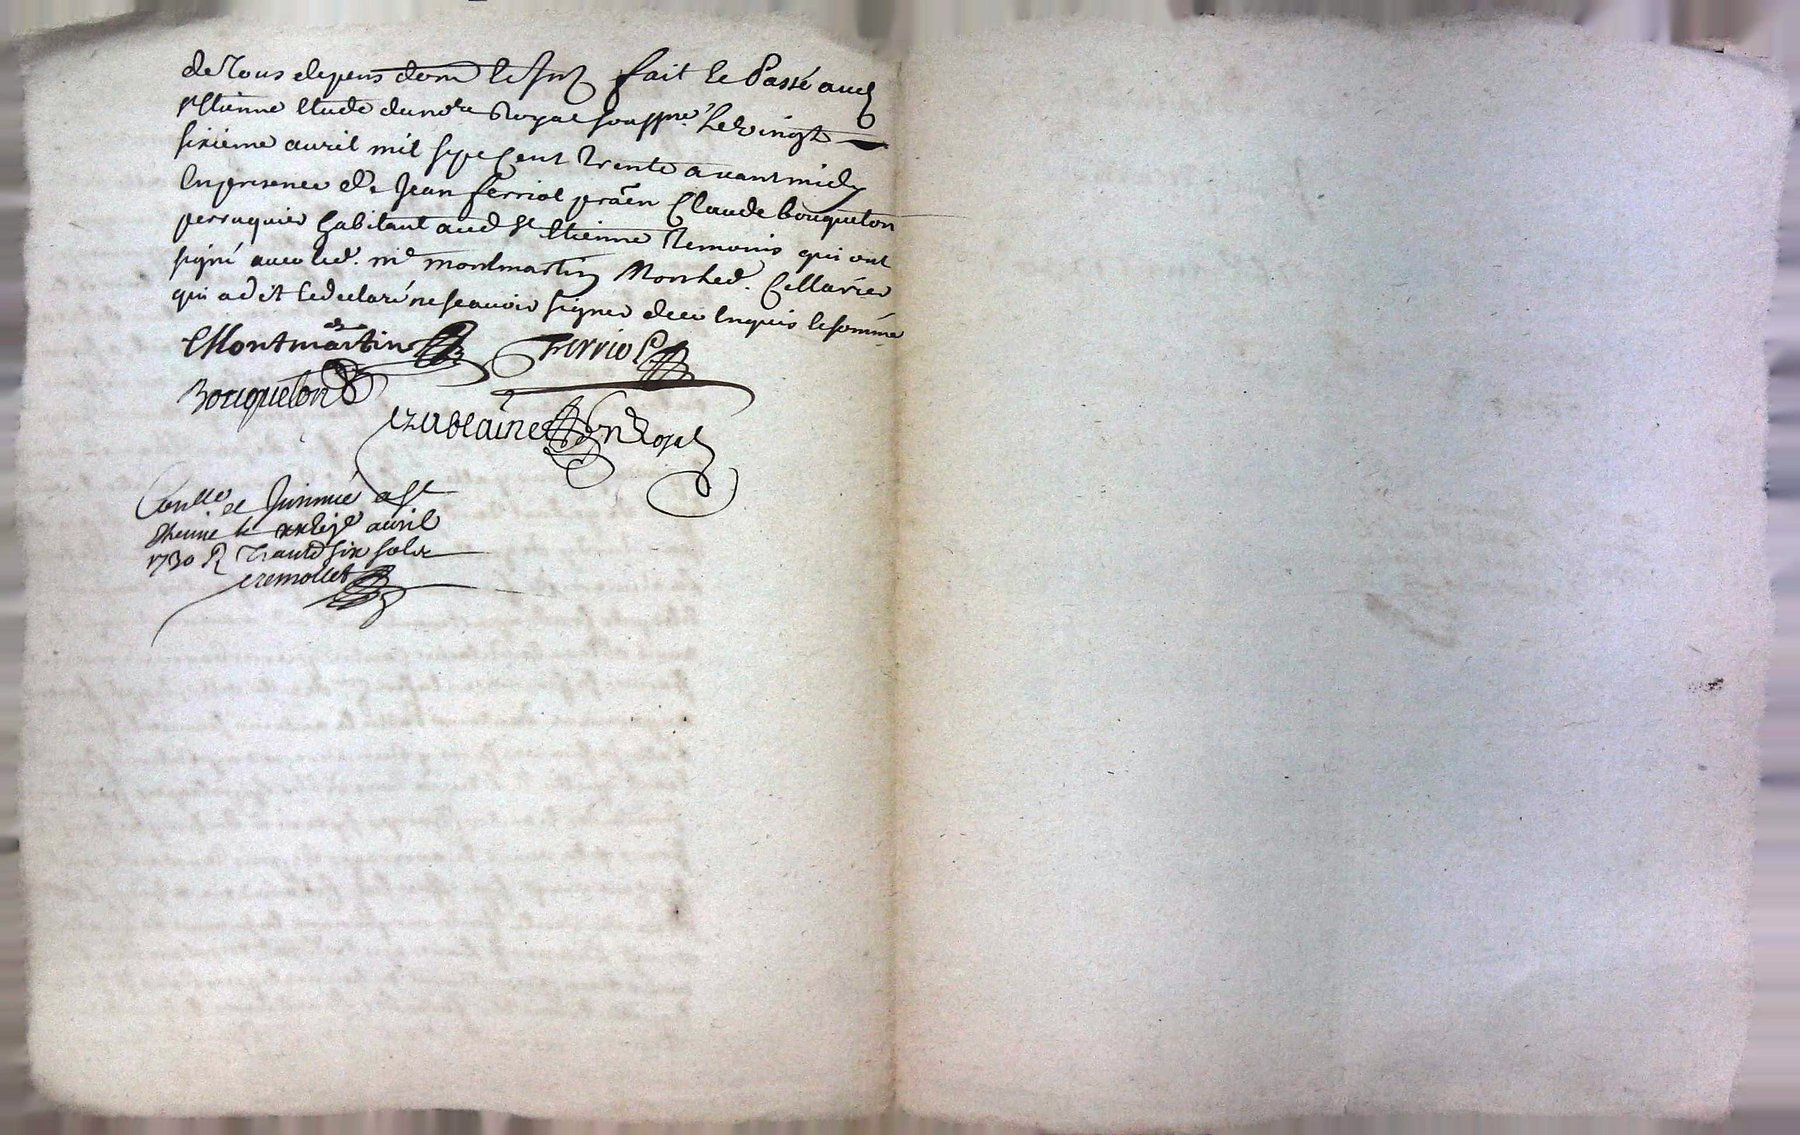 de tous depens dom et Int fait et Passé aud
st Etienne etude du no.re Royal soussne. Le vingt
sixieme avril mil sept Cent trente avant midy
En presence de Jean ferriol praēn Claude bouqueton
perruquier habitant aud st Etienne temoins qui ont
signé avec led. mr. montmartin Non led. Cellarier
qui a dit et declaré ne scavoir signer de ce Enquis et sommé
Montmartin Ferriol
Bouqueton
Blaine n Royal
Conlle et Insinué a st
Etienne le avril
1730 R Trante six sols